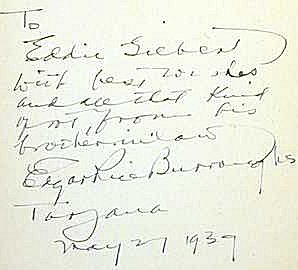 To
Eddie Gilbert
with best wishes
and all that kind
of rot, from his
brother in law
Edgar Rice Burroughs
Tarzana
May 27 1939